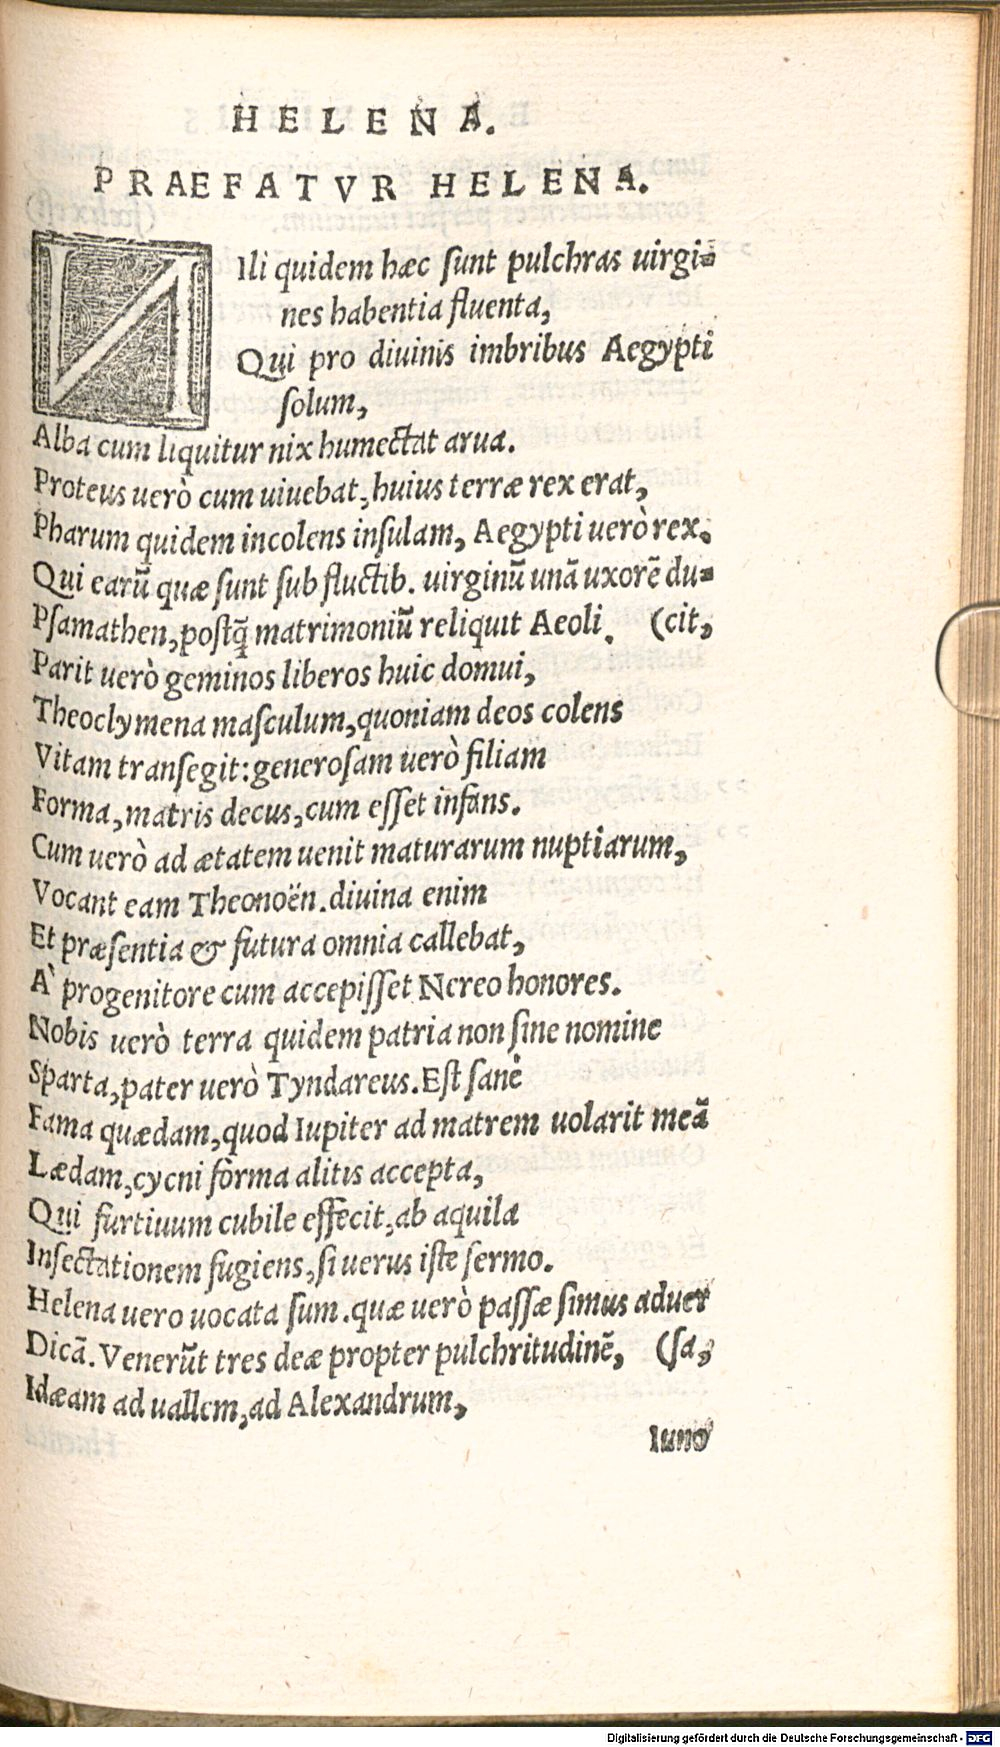 HELENA.
PRAEFATVR HELENA.
NIli quidem hæc sunt pulchras virgi-
nes habentia fluenta,
Qui pro diuinis imbribus Aegypti
solum,
Alba cum liquitur nix humectat arua.
Proteus uerò cum uiuebat, huius terræ rex erat,
Pharum quidem incolens insulam, Aegypti uerò rex.
Qui earũ quæ sunt sub fluctib. virginũ unã uxorẽ du-
Psamathen, postq̃ matrimoniũ reliquit Aeoli. (cit,
Parit uerò geminos liberos huic domui,
Theoclymena masculum, quoniam deos colens
Vitam transegit: generosam uerò filiam
Forma, matris decus, cum esset infans.
Cum uerò ad ætatem uenit maturarum nuptiarum,
Vocant eam Theonoën. diuina enim
Et præsentia & futura omnia callebat,
A` progenitore cum accepisset Nereo honores.
Nobis uerò terra quidem patria non sine nomine
Sparta, pater uerò Tyndareus. Est sanè
Fama quædam, quod Iupiter ad matrem uolarit meã
Lædam, cycni forma alitis accepta,
Qui furtiuum cubile effecit, ab aquila
Insectationem fugiens, si uerus iste sermo.
Helena uero uocata sum. quæ uerò passæ simus aduer
Dicã. Venerũt tres deæ propter pulchritudinẽ, (sa,
Idæam ad uallem, ad Alexandrum,
Iuno
Digitalisierung gefördert durch die Deutsche Forschungsgemeinschaft - DFG